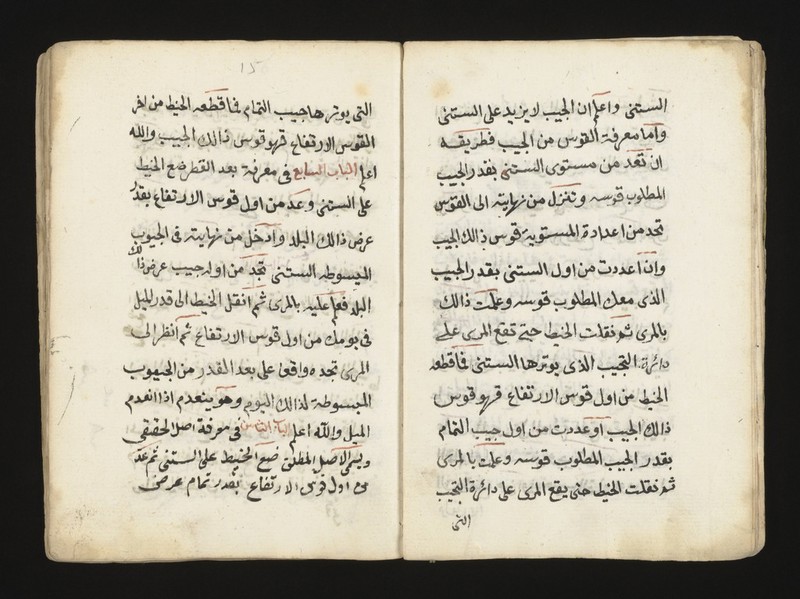 الستنى واعلم ان الجيب لا يزيد على الستنى
واما معرفة القوس من الجيب فطريقه
ان تعد من مستوى الستنى بقدر الجيب
المطلوب قوسه وتنزل من نهايته الى القوس
تجد من اعداده المستوية قوس ذالك الجيب
وان اعددت من اول الستنى بقدر الجيب
الذى معك المطلوب قوسه وعلمت ذالك
بالمرى ثم نقلت الخيط حتى تقع المرى على
دائرة التجيب الذى يوترها الستنى فاقطعه
الخيط من اول قوس الارتفاع فهو قوس
ذالك الجيب او عددت من اول جيب التمام
بقدر الجيب المطلوب قوسه وعلمت بالمرى
ثم نقلت الخيط حتى يقع المرى على دائرة التجيب
التى
١٥
التى يوترها جيب التمام فما قطعه الخيط من اخر
القوس الارتفاع فهو قوس ذالك الجيب والله
اعلم الباب السابع فى معرفة بعد القطر ضع الخيط
على الستنى وعد من اول قوس الارتفاع بقدر
عرض ذالك البلد وادخل من نهايته فى الجيوب
المبسوطه الستنى تجد من اوله جيب عرض ذالك
البلد فعلم عليه بالمرى ثم انقل الخيط الى قدر الميل
فى يومك من اول قوس الارتفاع ثم انظر الى
المرى تجده واقع على بعد القدر من الجيوب
المبسوطة لذالك اليوم وهو ينعدم اذا انعدم
الميل والله اعلم الباب الثامن فى معرفة اصل الحقيقى
ويسمى الاصل المطلق ضع الخيط على الستنى ثم عد
من اول قوس الارتفاع بقدر تمام عرض